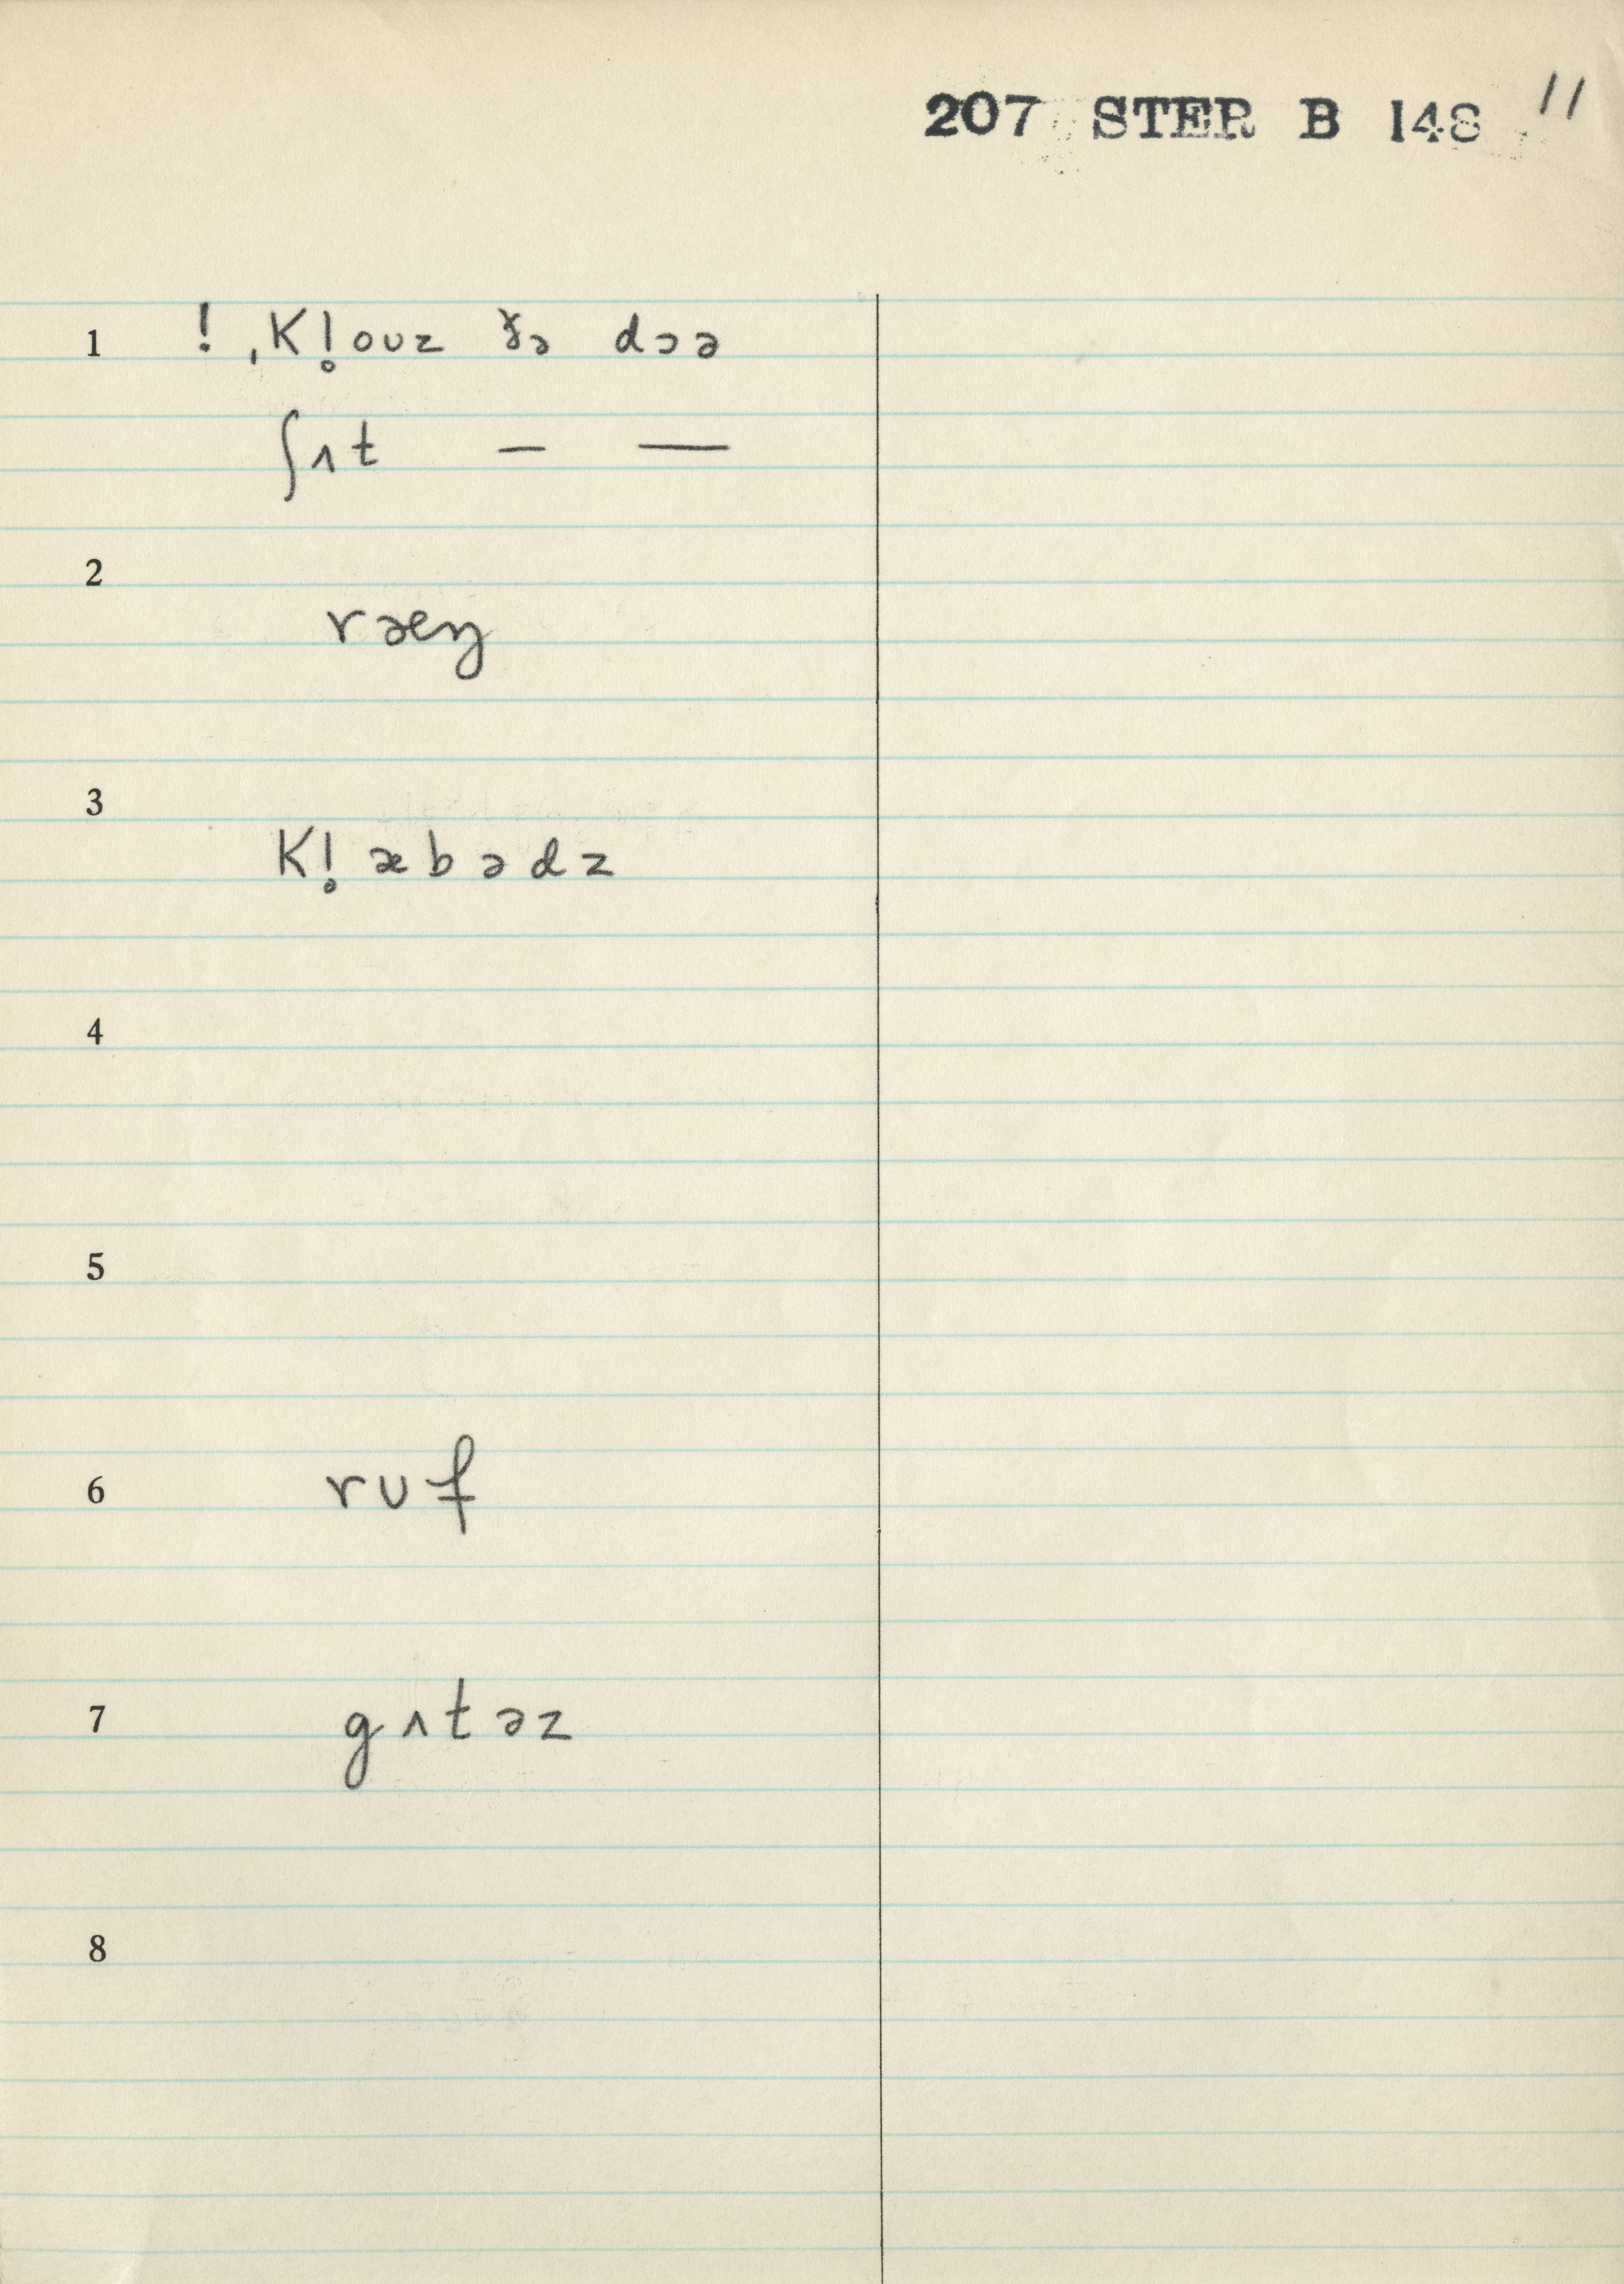 207 STER B 148 11
1 ! ˌkl̥oʊz ðə dɔə
ʃʌt – —
2
ræŋ
3
kl̥æbədz
4
5
6 rʊf
7 gʌtəz
8